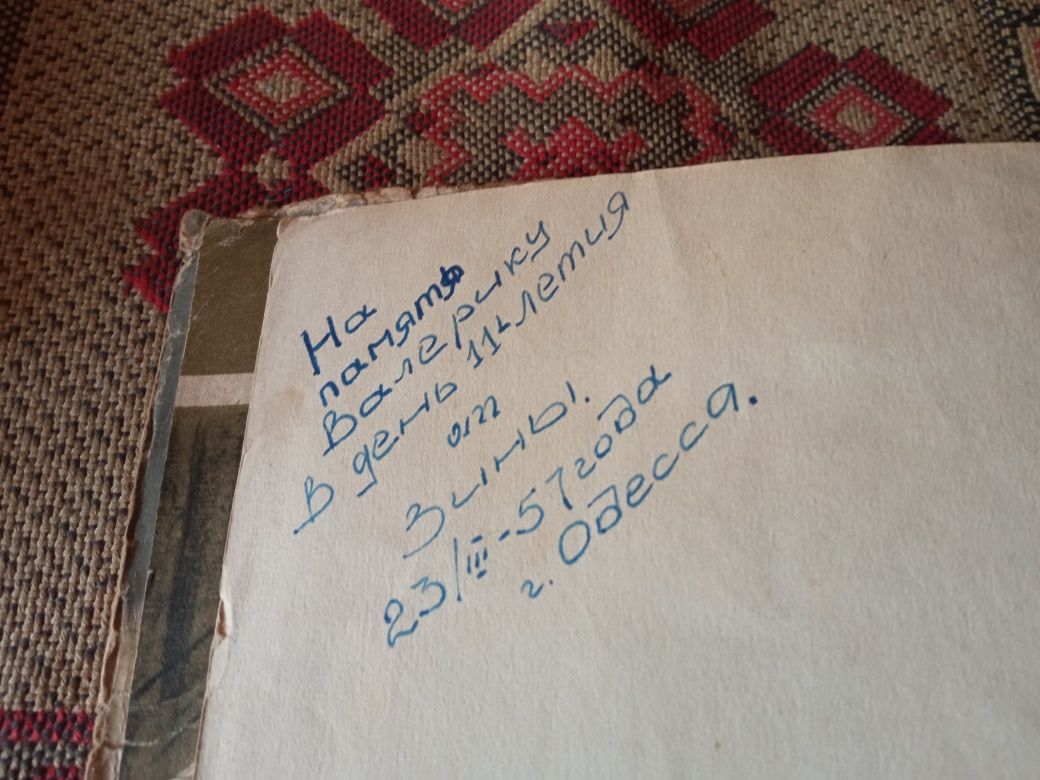 На
память
Валерику
В день 11ьлетия
от
Зины.
23/III-57 года
г. Одесса.